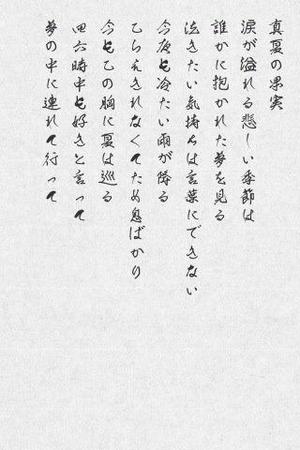 真夏の果実
涙が溢れる悲しい季節は
誰かに抱かれた夢を見る
泣きたい気持ちは言葉にできない
今夜も冷たい雨が降る
こらえきれなくてため息ばかり
今もこの胸に夏は巡る
四六時中も好きと言って
夢の中に連れて行って